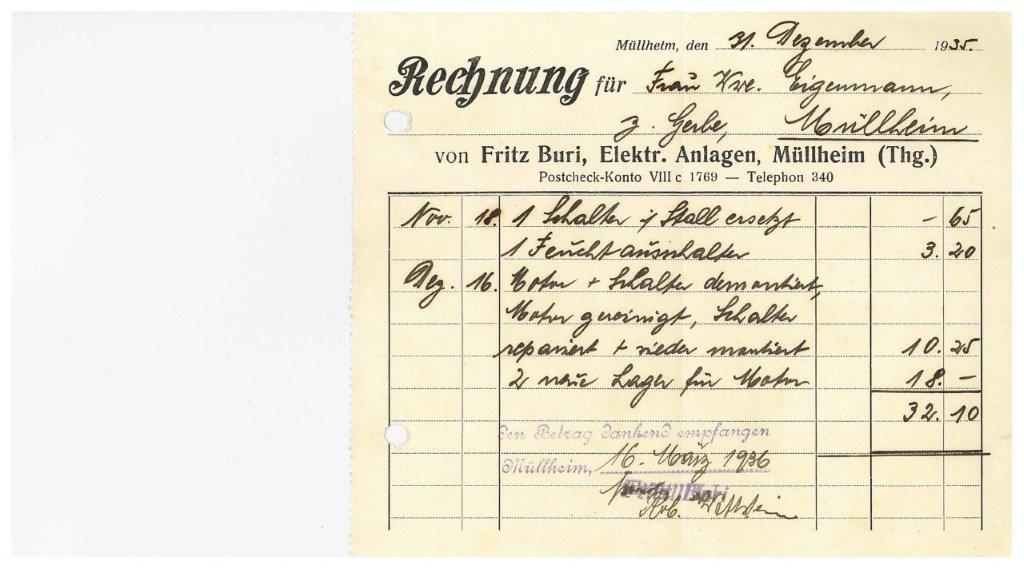 Müllheim, den 31. Dezember 1935.
Rechnung für Frau Wwe. Eigenmann,
z. Gerbe, Müllheim
von Fritz Buri, Elektr. Anlagen, Müllheim (Thg.)
Postcheck-Konto VIII c 1769 — Telephon 340
Nov. 18. 1 Schalter i/ Stall ersetzt - 65
1 Feuchtausschalter 3. 20
Dez. 16. Motor + Schalter demontiert,
Motor gereinigt, Schalter
repariert + wieder montiert 10. 25
2 neue Lager für Motor 18. -
32. 10
Den Betrag dankend empfangen
Müllheim, 16. März 1936
Buri